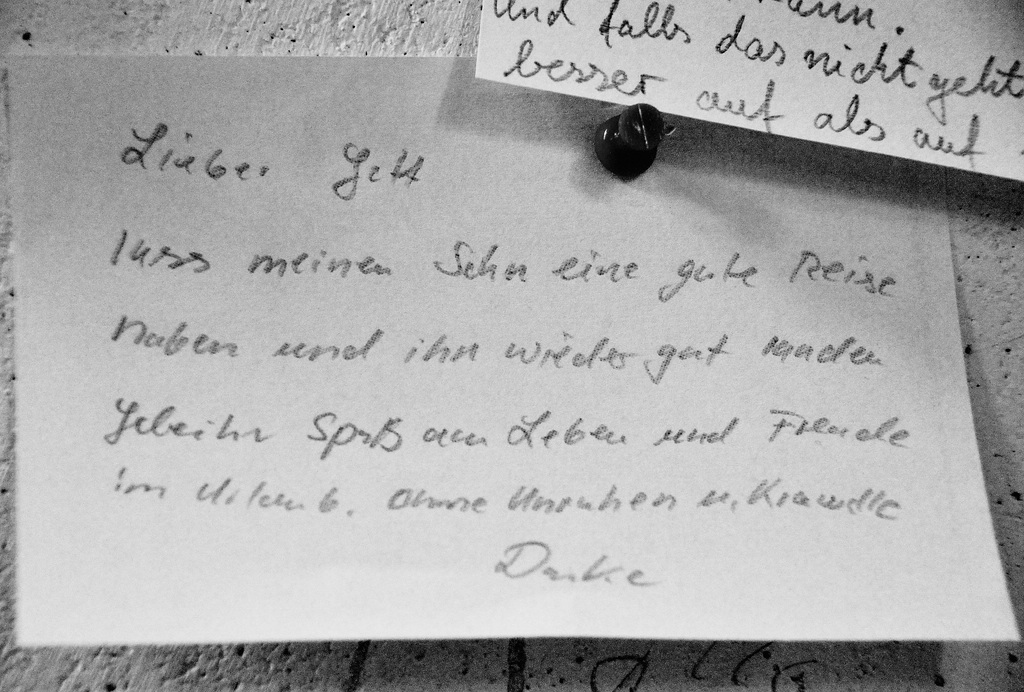 ann.
und falls das nicht geht
besser auf als auf
Lieber Gott
lass meinen Sohn eine gute Reise
haben und ihn wieder gut
Gebe ihr Spaß am Leben und Freude
im Urlaub. ohne Unruhen u. Krawalle
Danke